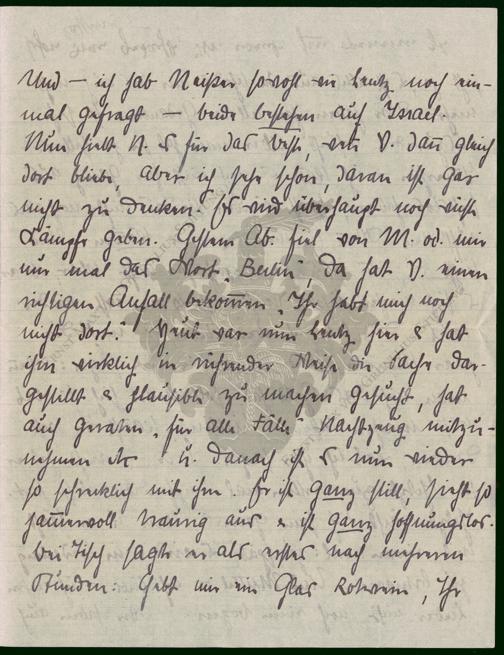 Und – ich hab Neißer sowohl wie Leutz noch ein-
mal gefragt – beide bestehen auf Israel.
Nun hielt N. es für das beste, wenn V. dann gleich
dort bliebe, aber ich sehe schon, daran ist gar
nicht zu denken. Es wird überhaupt noch viele
Kämpfe geben. Gestern Ab. fiel von M. od. mir
nur mal das Wort „Berlin“, da hat V. einen
richtigen Anfall bekommen „Ihr habt mich noch
nicht dort.“ Heut war nun Leutz hier & hat
ihm wirklich in rührender Weise die Sache dar-
gestellt & plausible zu machen gesucht, hat
auch geraten, „für alle Fälle“ Nachtzeug mitzu-
nehmen etc u. danach ist es nun wieder
so schrecklich mit ihm. Er ist ganz still, sieht so
jammervoll traurig aus & ist ganz hoffnungslos.
Bei Tisch sagte er als erstes nach mehreren
Stunden: Gebt mir ein Glas Rotwein, Ihr